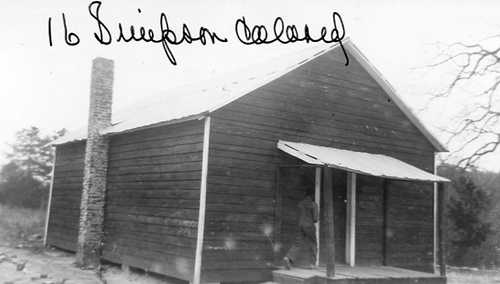 16 Simpson Colored